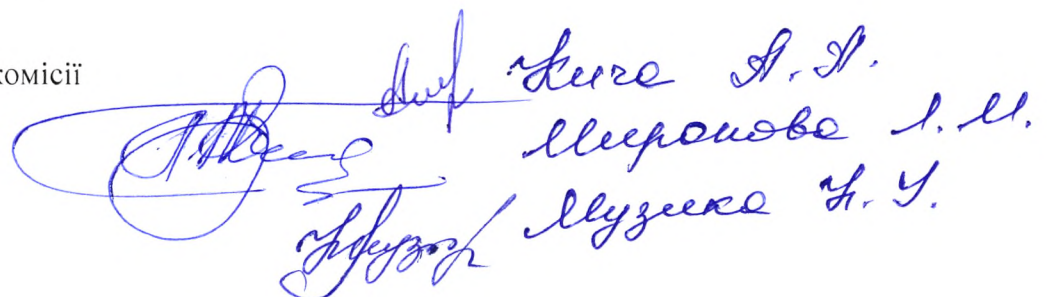 комісії
Кича А. А.
Миронова Л. М.
Музика Н. У.